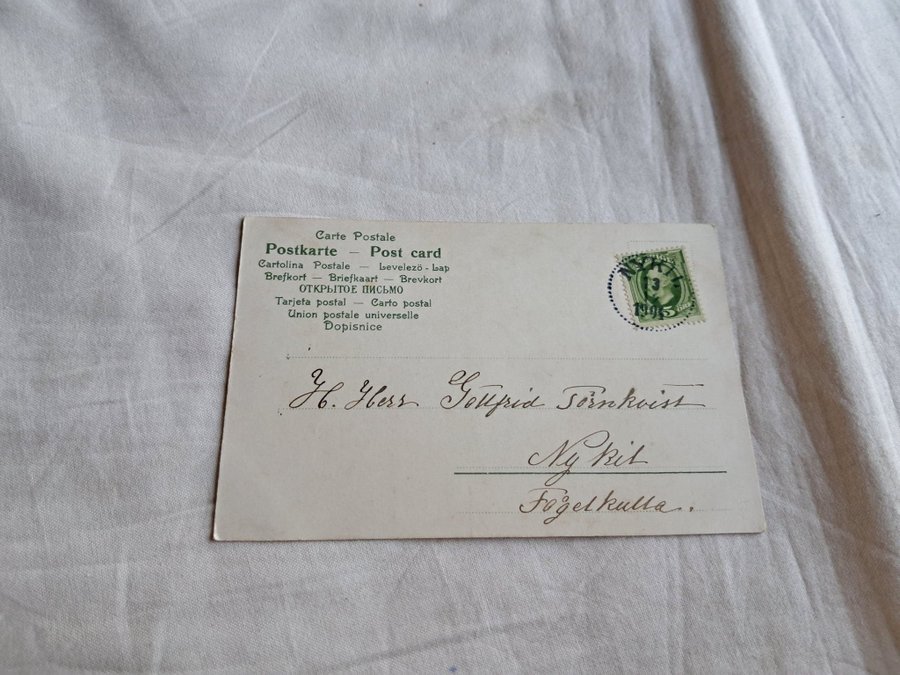 Carte Postale
Postkarte — Post card
Cartolina Postale — Levelező-Lap
Brefkort — Briefkaart — Brevkort
ОТКРЫТОЕ ПИСЬМО
Tarjeta postal — Carto postal
Union postale universelle
Dopisnice
NYKIL
3
5
H. Herr Gottfrid Törnkvist
Nykil
Fogelkulla.